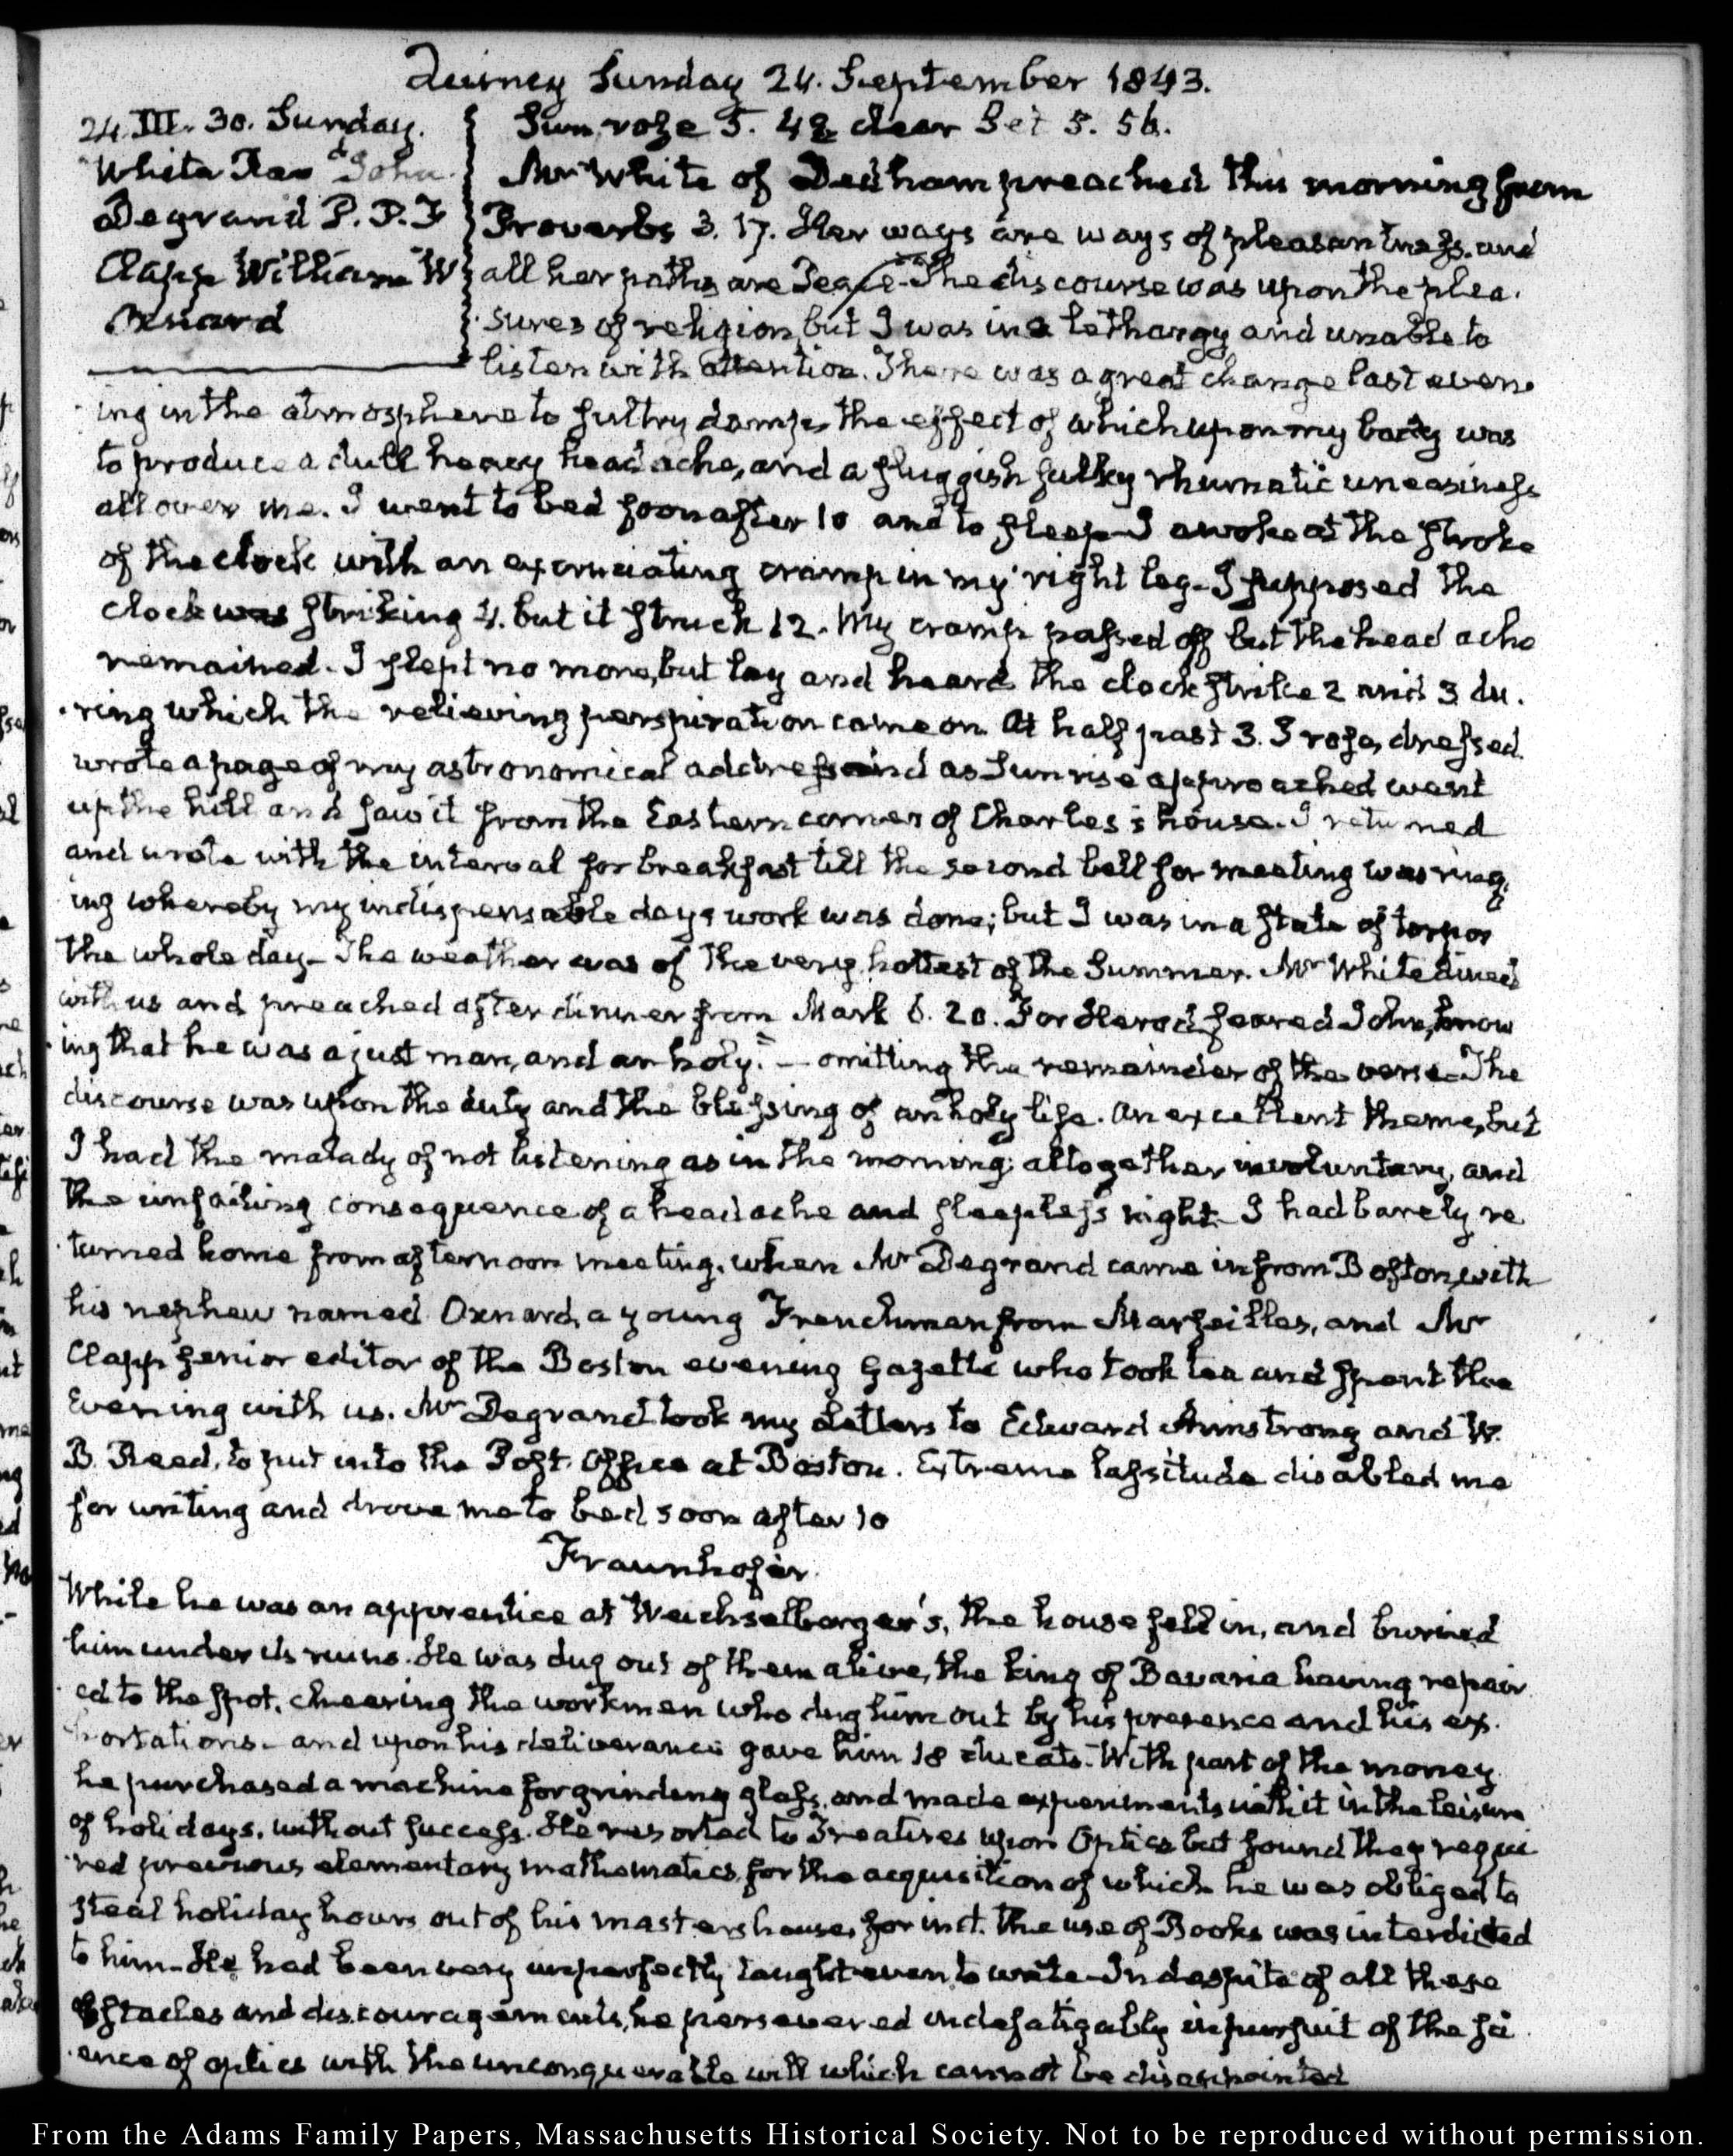 Quincy Sunday 24. September 1843.
24. III. 30. Sunday.
White Rev.d John.
Degrand P. P. F
Clapp William W
Oxnard
Sun rose 5. 48 clear Set 5. 56.
Mr White of Dedham preached this morning from
Proverbs 3. 17. Her ways are ways of pleasantness, and
all her paths are Peace. The discourse was upon the plea-
sures of religion, but I was in a lethargy and unable to
listen with attention. There was a great change last even-
ing in the atmosphere to sultry damp, the effect of which upon my body was
to produce a dull heavy head ache, and a sluggish sulky rhumatic uneasiness
all over me. I went to bed soon after 10 and to sleep— I awoke at the stroke
of the clock with an excruciating cramp in my right leg— I supposed the
clock was striking 4. but it struck 12. My cramp passed off but the head ache
remained. I slept no more, but lay and heard the clock strike 2 and 3 du-
ring which the relieving perspiration came on. At half past 3. I rose, dressed
wrote a page of my astronomical address and as Sunrise approached went
up the hill and saw it from the Eastern corner of Charles's house. I returned
and wrote with the interval for breakfast till the second bell for meeting was ring-
ing whereby my indispensable days work was done; but I was in a state of torpor
the whole day— The weather was of the very hottest of the Summer. Mr White dined
with us and preached after dinner from Mark 6. 20. For Herod feared John, know
ing that he was a just man, and an holy." — omitting the remainder of the verse— The
discourse was upon the duty and the blessing of an holy life. An excellent theme, but
I had the malady of not listening as in the morning; altogether involuntary, and
the unfailing consequence of a head ache and sleepless night— I had barely re
turned home from afternoon meeting, when Mr Degrand came in from Boston, with
his nephew named Oxnard, a young Frenchman from Marseilles, and Mr
Clapp senior editor of the Boston evening Gazette who took tea and spent the
Evening with us. Mr Degrand took my Letters to Edward Armstrong and W.
B. Reed, to put into the Post Office at Boston. Extreme lassitude disabled me
for writing and drove me to bed soon after 10
Fraunhofer.
While he was an apprentice at Weichselberger's, the house fell in, and buried
him under its ruins. He was dug out of them alive, the king of Bavaria having repair
ed to the spot, cheering the workmen who dug him out by his presence and his ex-
hortations— and upon his deliverance gave him 18 ducats. With part of the money
he purchased a machine for grinding glass, and made experiments with it in the leisure
of holidays, without success. He resorted to Treatises upon Optics but found they requi
red previous elementary mathematics, for the acquisition of which he was obliged to
steal holiday hours out of his masters house, for in it the use of Books was interdicted
to him— He had been very imperfectly taught even to write— In despite of all these
obstacles and discouragements, he persevered indefatigably in pursuit of the sci
ence of optics with the unconquerable will which cannot be disappointed
From the Adams Family Papers, Massachusetts Historical Society. Not to be reproduced without permission.